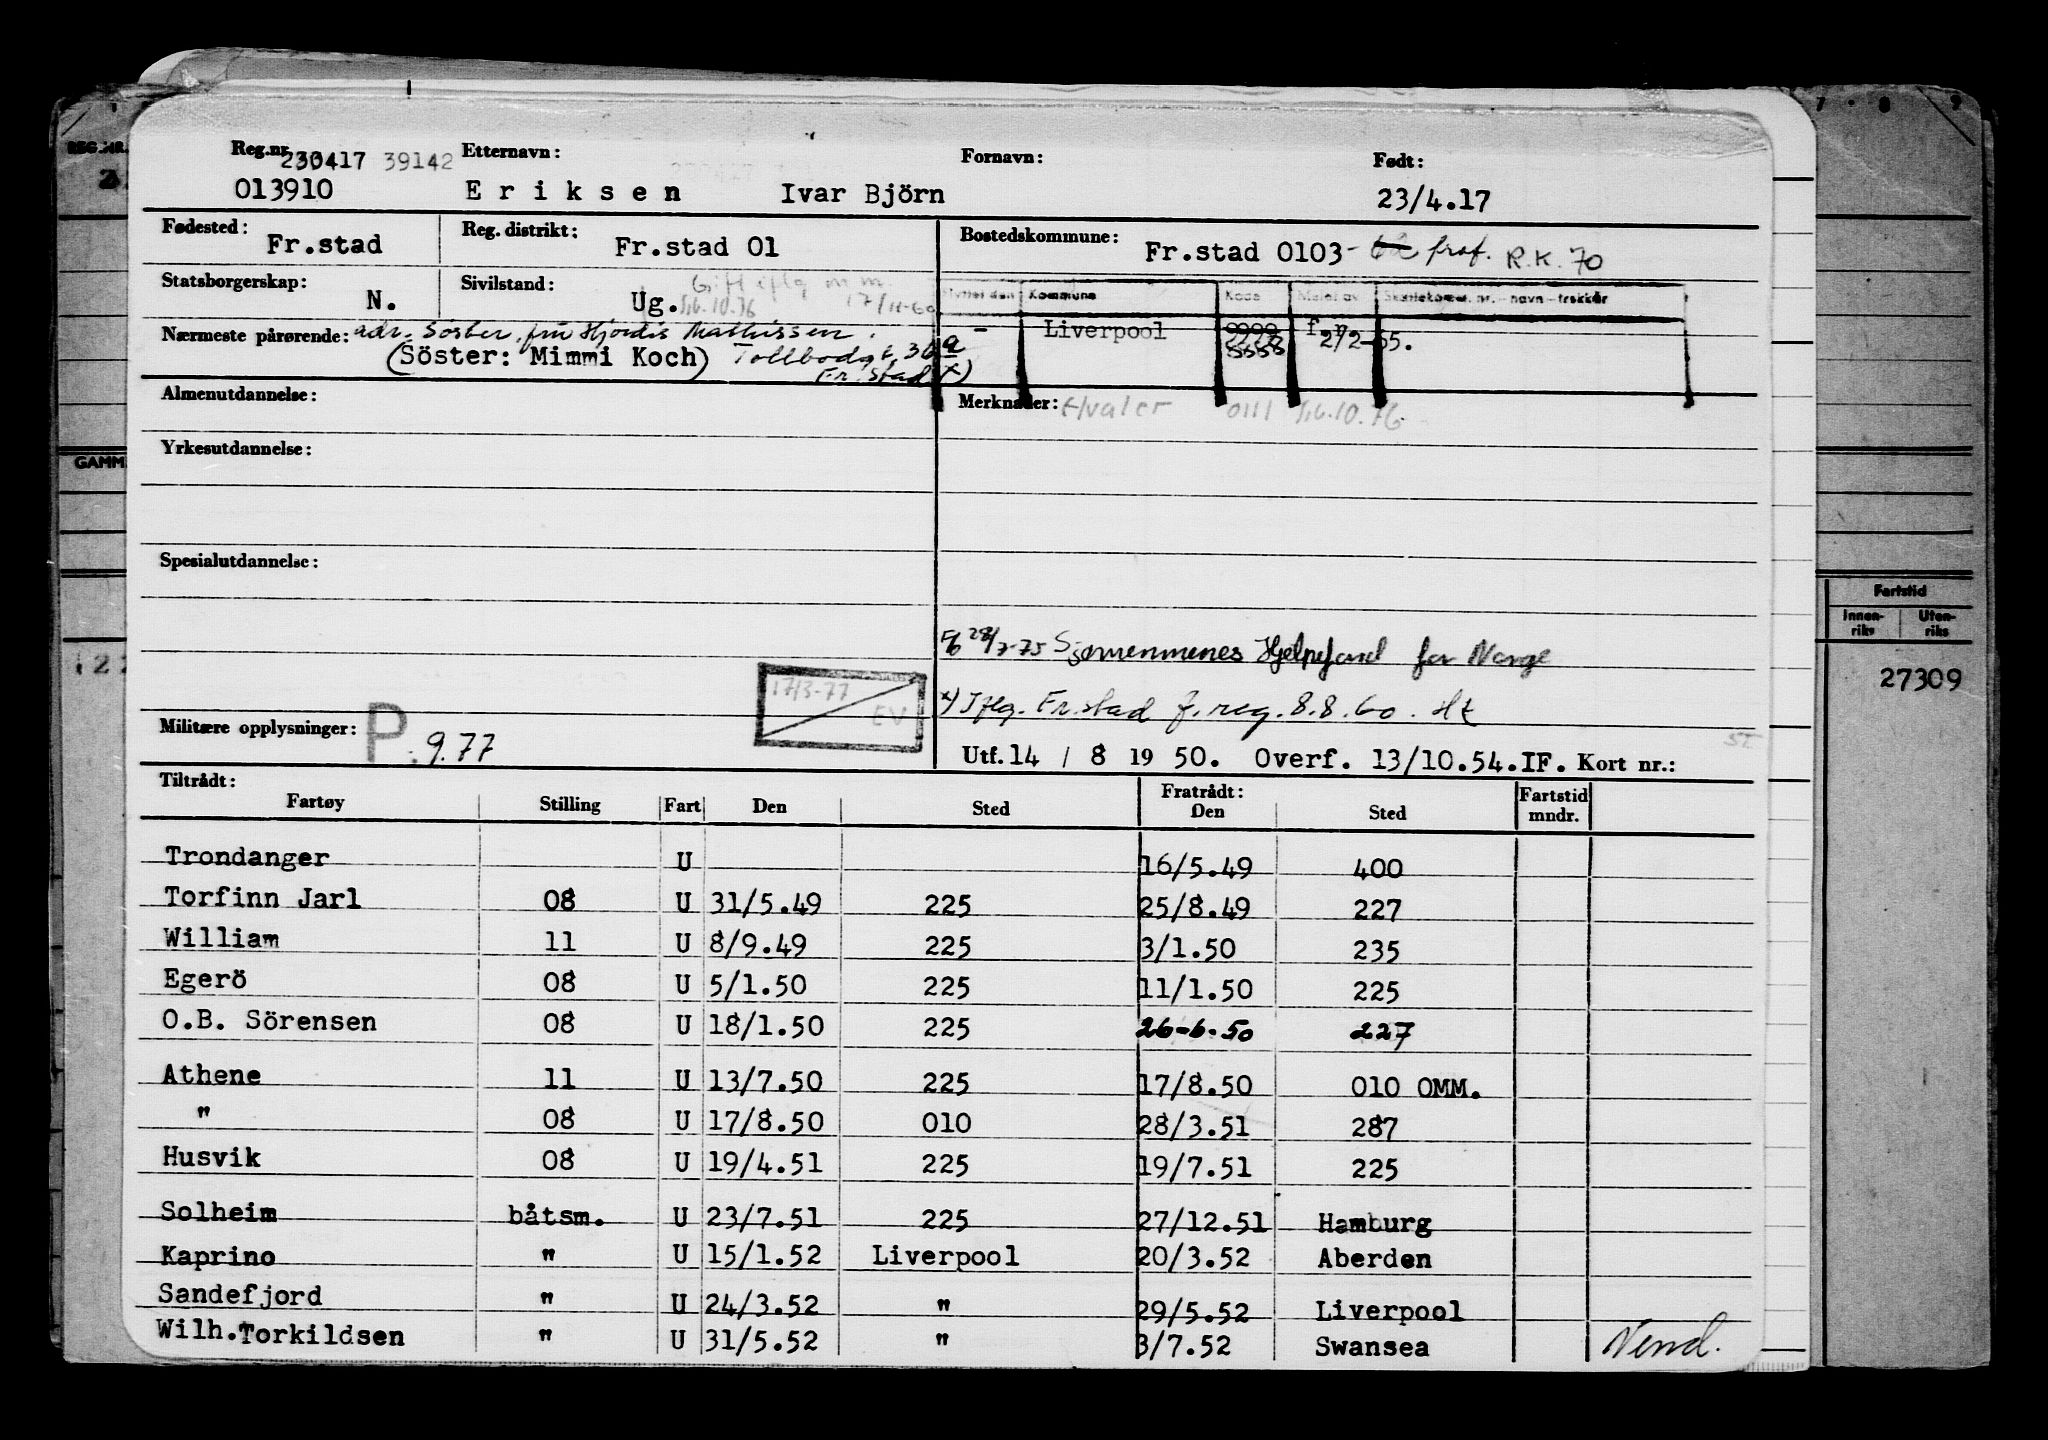 REG.NR.
7 · 8 9
Reg.nr. 230417 39142 Etternavn: Fornavn: Født:
013910 Eriksen Ivar Björn 23/4.17
Fødested: Fr.stad Reg. distrikt: Fr.stad 01 Bostedskommune: Fr.stad 0103 - fraf. R.K. 70
Statsborgerskap: N. Sivilstand: Ug. Gift iflg m.m. 17/11-60
16.10.76
Flyttet den Kommune Kode Meldt av Skattekomm. nr. – navn – trekkår
- Liverpool 2/2-65.
Nærmeste pårørende: adr. Søster, fru Hjördis Mathissen.
(Söster: Mimmi Koch) Tollbodgt. 30a
Fr.stad x)
Almenutdannelse: Merknader: Hvaler 0111 16.10.76
GAMM
Yrkesutdannelse:
Spesialutdannelse:
Fartstid
Innen-riks Uten-riks
27309
28/7-75 Sjømennenes Hjelpefond for Norge
17/3-77
EV
x) Iflg. Fr.stad f.reg. 8.8.60. Ht
Militære opplysninger: P. 9.77
Utf. 14 / 8 19 50. Overf. 13/10.54.IF. Kort nr.:
Tiltrådt: Fratrådt: Fartstid
Fartøy Stilling Fart Den Sted Den Sted mndr.
Trondanger U 16/5.49 400
Torfinn Jarl 08 U 31/5.49 225 25/8.49 227
William 11 U 8/9.49 225 3/1.50 235
Egerö 08 U 5/1.50 225 11/1.50 225
O.B. Sörensen 08 U 18/1.50 225 26-6-50 227
Athene 11 U 13/7.50 225 17/8.50 010 OMM.
" 08 U 17/8.50 010 28/3.51 287
Husvik 08 U 19/4.51 225 19/7.51 225
Solheim båtsm. U 23/7.51 225 27/12.51 Hamburg
Kaprino " U 15/1.52 Liverpool 20/3.52 Aberden
Sandefjord " U 24/3.52 " 29/5.52 Liverpool
Wilh.Torkildsen " U 31/5.52 " 3/7.52 Swansea
Vend.